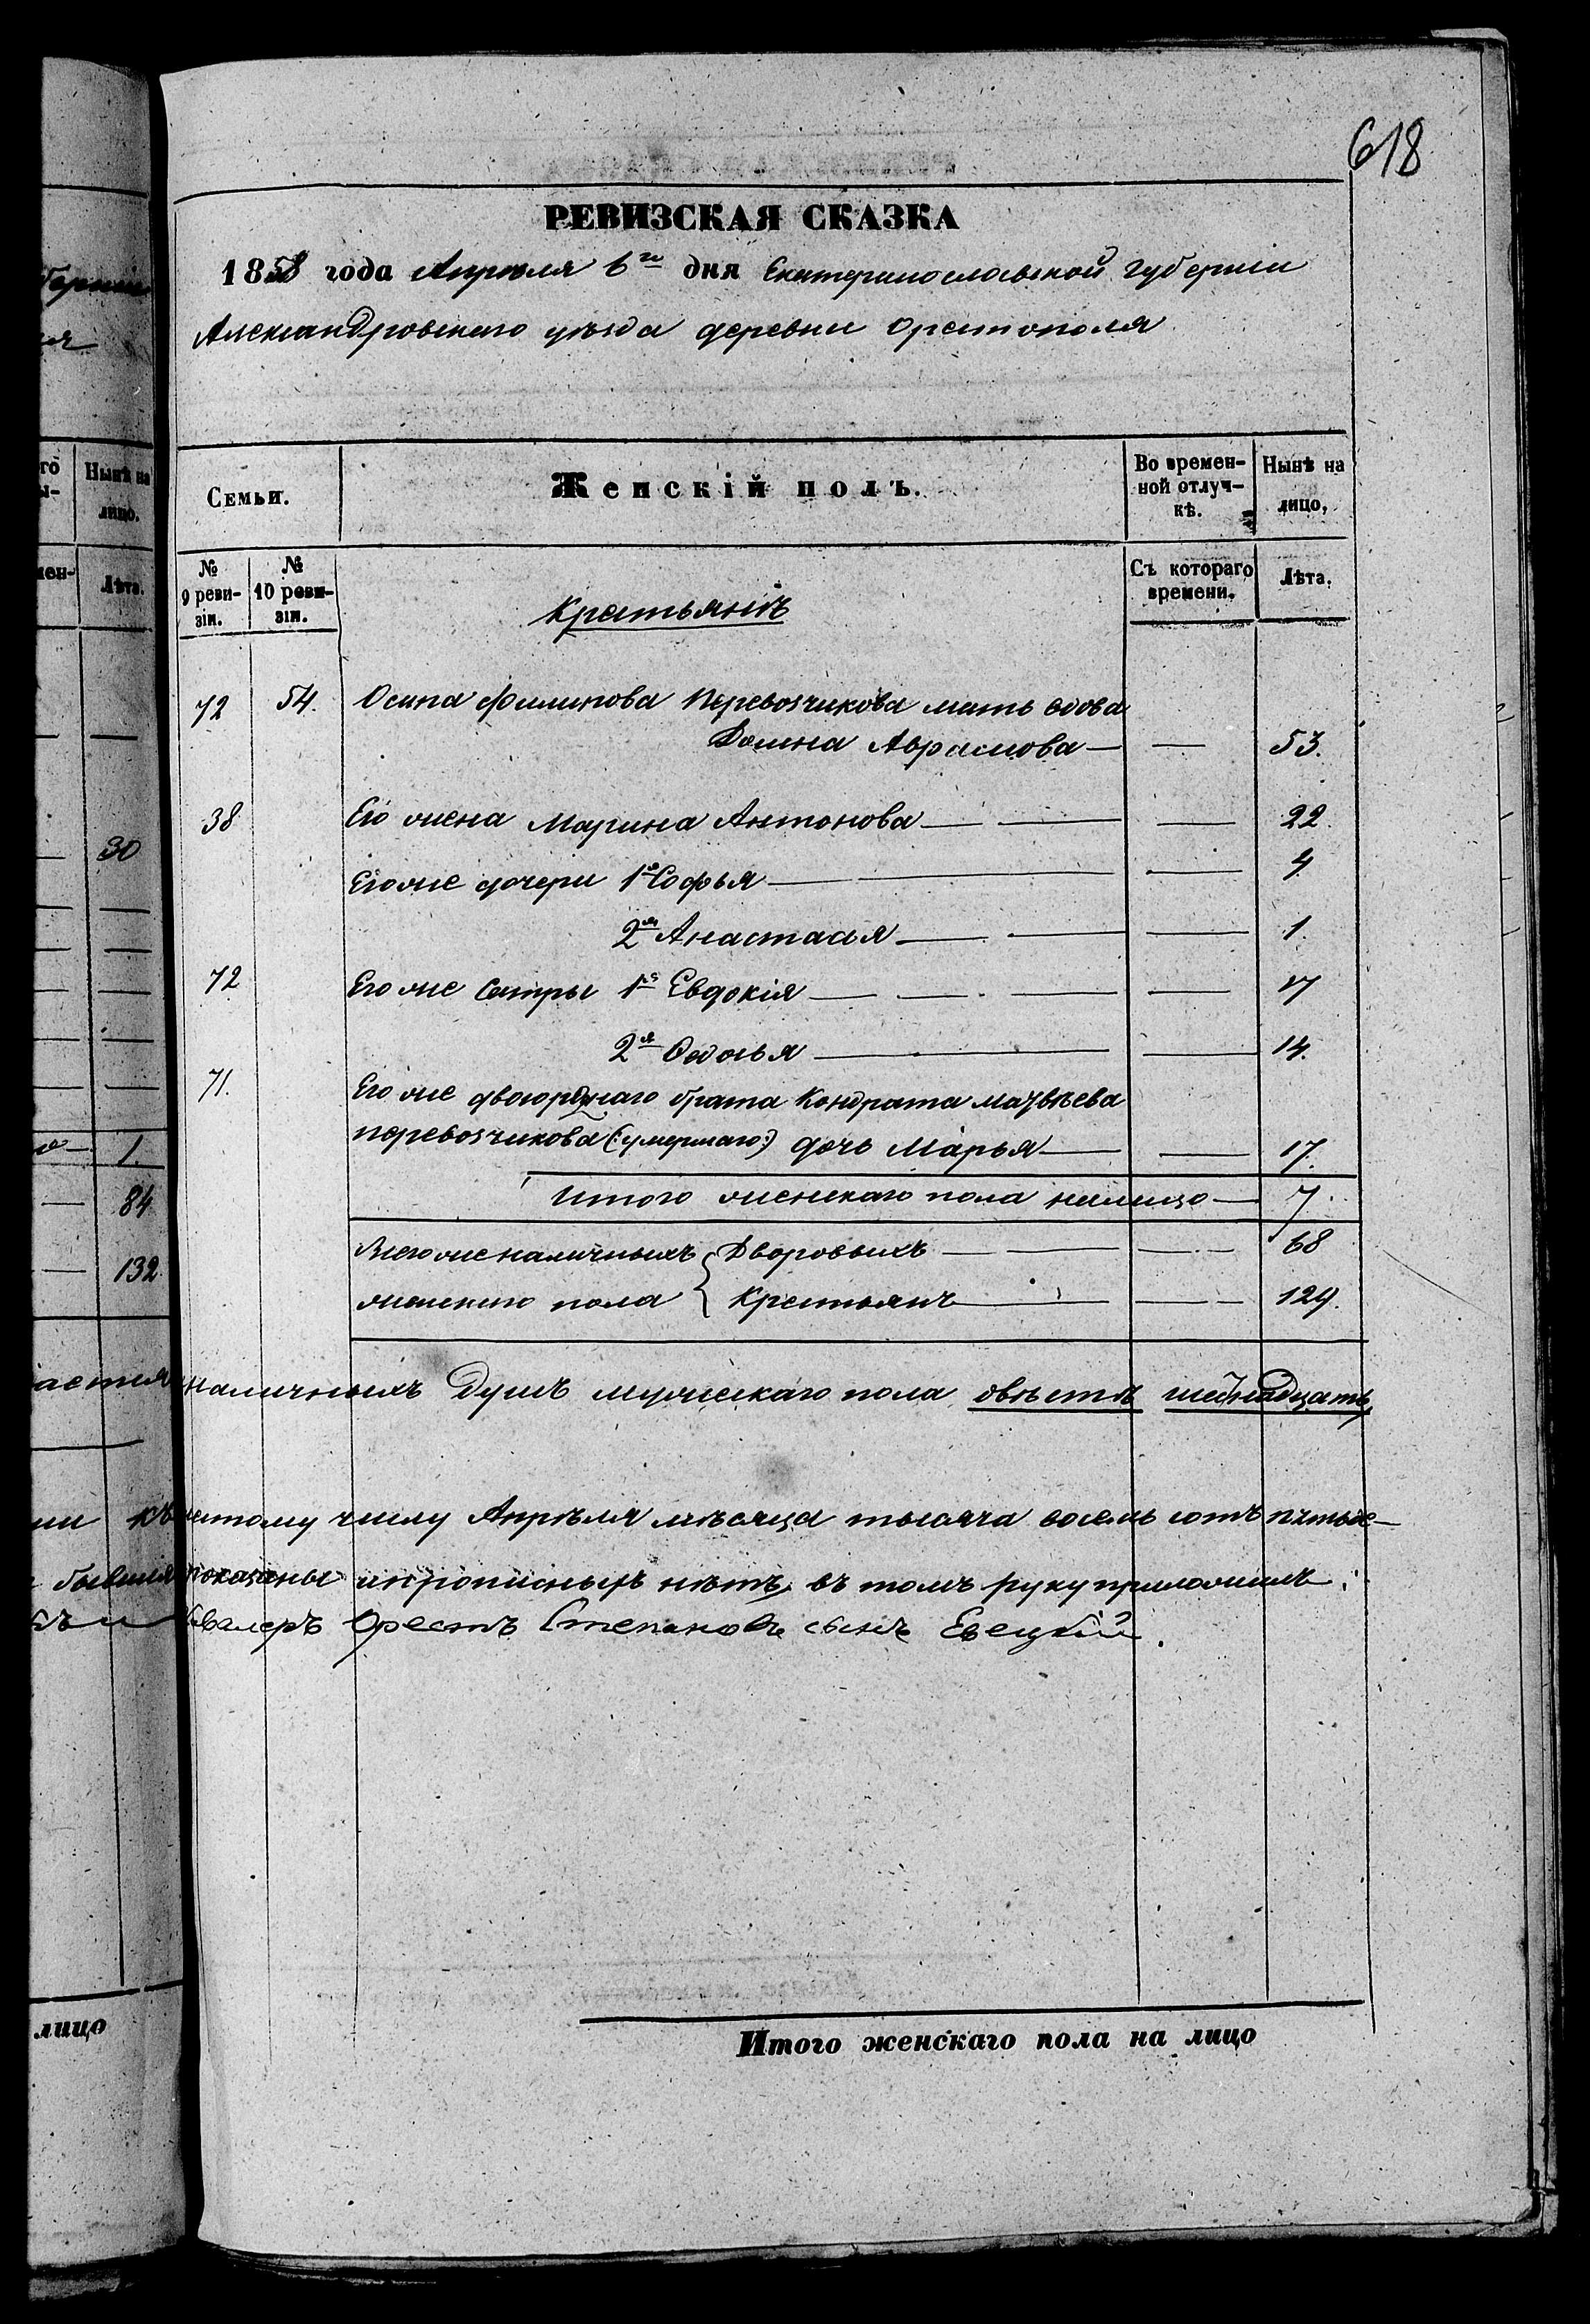 618
РЕВИЗСКАЯ СКАЗКА
1858 года Апрѣля 6го дня Екатеринославской губерніи
Александровскаго уѣзда деревни Орестополя
Семьи.
Женскій полъ.
Во времен-
ной отлуч-
кѣ.
Нынѣ на
лицо,
№
9 реви-
зіи.
№
10 реви-
зіи.
Крестьянъ
Съ котораго
времени.
Лѣта.
72 54. Осипа Филипова Перевозчикова мать вдова
Домна Аврамова — — 53.
38 Его жена Марина Антонова — — 22.
Его же дочери 1я Софья — — 4
2я Анастасья — — 1.
72 Его же сестры 1я Евдокія — — 17
2я Федосья — — 14.
71. Его же двоюроднаго брата Кондрата Матвѣева
Перевозчикова (:умершаго:) дочь Марья — — 17.
Итого женскаго пола налицо — 7.
Всего же наличныхъ { Дворовыхъ — — 68
женского пола { Крестьянъ — — 129.
наличныхъ душъ мужескаго пола двѣстѣ шестнадцать,
шестому числу Апрѣля мѣсяца тысяча восемь сотъ пятьде-
показаны и прописныхъ нѣтъ, въ томъ руку приложилъ:
кавалеръ Орестъ Степановъ сынъ Евецкій.
Итого женскаго пола на лицо
Нынѣ на
лицо.
Лѣта.
30
1.
84
132
бывшія
лицо